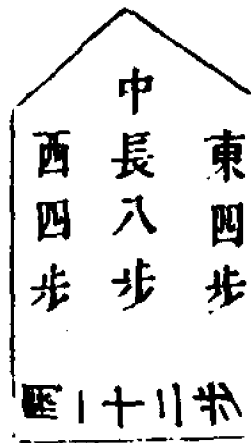 東四步
中長八步
西四步
一十二步